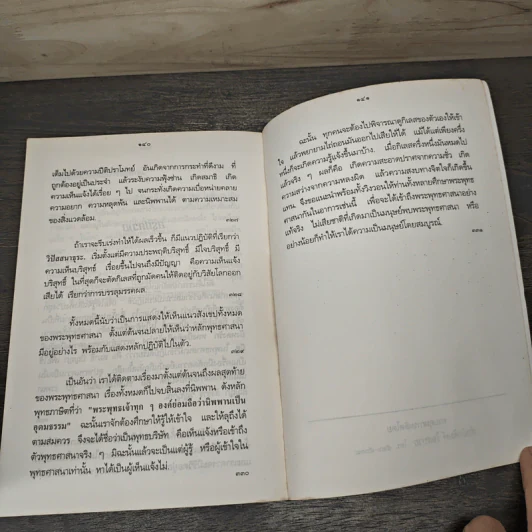 ๑๔๐
เต็มไปด้วยความปีติปราโมทย์ อันเกิดจากการกระทำที่ดีงาม ที่
ถูกต้องอยู่เป็นประจำ แล้วระงับความฟุ้งซ่าน เกิดสมาธิ เกิด
ความเห็นแจ้งได้เรื่อย ๆ ไป จนกระทั่งเกิดความเบื่อหน่ายคลาย
ความอยาก ความหลุดพ้น และนิพพานได้ ตามความเหมาะสม
ของสิ่งแวดล้อม.
๓๒๗
ถ้าเราจะรีบเร่งทำให้ได้ผลเร็วขึ้น ก็มีแนวปฏิบัติที่เรียกว่า
วิปัสสนาธุระ, เริ่มตั้งแต่มีความประพฤติบริสุทธิ์ มีใจบริสุทธิ์ มี
ความเห็นบริสุทธิ์ เรื่อยขึ้นไปจนถึงมีปัญญา คือความเห็นแจ้ง
บริสุทธิ์ ในที่สุดก็จะตัดกิเลสที่ผูกมัดคนให้ติดอยู่กับวิสัยโลกออก
เสียได้ เรียกว่าการบรรลุมรรคผล.
๓๒๘
ทั้งหมดนี้นับว่าเป็นการแสดงให้เห็นแนวสังเขปทั้งหมด
ของพระพุทธศาสนา ตั้งแต่ต้นจนปลายให้เห็นว่าหลักพุทธศาสนา
มีอยู่อย่างไร พร้อมกับแสดงหลักปฏิบัติไปในตัว.
๓๒๙
เป็นอันว่า เราได้ติดตามเรื่องมาตั้งแต่ต้นจนถึงผลสุดท้าย
ของพระพุทธศาสนา เรื่องทั้งหมดก็ไปจบสิ้นลงที่นิพพาน ดังหลัก
พุทธภาษิตที่ว่า "พระพุทธเจ้าทุก ๆ องค์ย่อมถือว่านิพพานเป็น
อุดมธรรม" ฉะนั้นเราจักต้องศึกษาให้รู้ให้เข้าใจ และให้ลุถึงได้
ตามสมควร จึงจะได้ชื่อว่าเป็นพุทธบริษัท คือเห็นแจ้งหรือเข้าถึง
ตัวพุทธศาสนาจริง ๆ มิฉะนั้นแล้วจะเป็นแต่ผู้รู้ หรือผู้เข้าใจใน
พุทธศาสนาเท่านั้น หาได้เป็นผู้เห็นแจ้งไม่.
๓๓๐
๑๔๑
ฉะนั้น ทุกคนจะต้องไปพิจารณาดูกิเลสของตัวเองให้เข้า
ใจ แล้วพยายามไถ่ถอนมันออกไปเสียให้ได้ แม้ได้แต่เพียงครึ่ง
หนึ่งก็จะเกิดความรู้แจ้งขึ้นมาบ้าง เมื่อกิเลสครึ่งหนึ่งมันหมดไป
แล้วจริง ๆ ผลก็คือ เกิดความสะอาดปราศจากความชั่ว เกิด
ความสว่างจากความหลงผิด แล้วความสงบทางจิตใจก็เกิดขึ้น
แทน จึงขอแนะนำพร้อมทั้งวิงวอนให้ท่านทั้งหลายศึกษาพระพุทธ
ศาสนากันในอาการเช่นนี้ เพื่อจะได้เข้าถึงตัวพระพุทธศาสนาอย่าง
แท้จริง ไม่เสียชาติที่เกิดมาเป็นมนุษย์พบพระพุทธศาสนา หรือ
อย่างน้อยก็ทำให้เราได้ความเป็นมนุษย์โดยสมบูรณ์.
๓๓๑